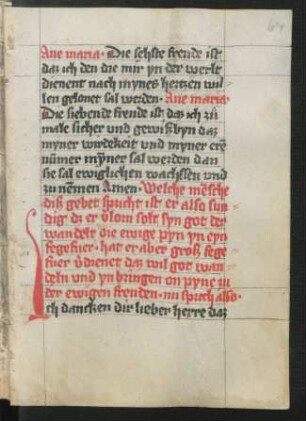 Aue maria · Die sehste freude ist
daz ich den die mir yn der werlt
dienent nach mynes hertzen wil
len gelonet sal werden · Aue maria ·
Die siebende freude ist daz ich zu
male sicher vnd gewiß byn daz
myner wirdekeit vnd myner ere
nūmer mÿner sal werden dan
sie sal ewiglichen wachssen vnd
zu nēmen Amen · Welche mēsche
diß gebet spricht ist er also sun
dig dz er v̄lorn solt syn got der
wandelt die ewige pyn yn eyn
fegefuer · hat er aber groß fege
fuer v̄dienet daz wil got wan
deln vnd yn bringen on pyne zu
der ewigen freuden · nu sprich also ·
Ich dancken dir lieber herre daz